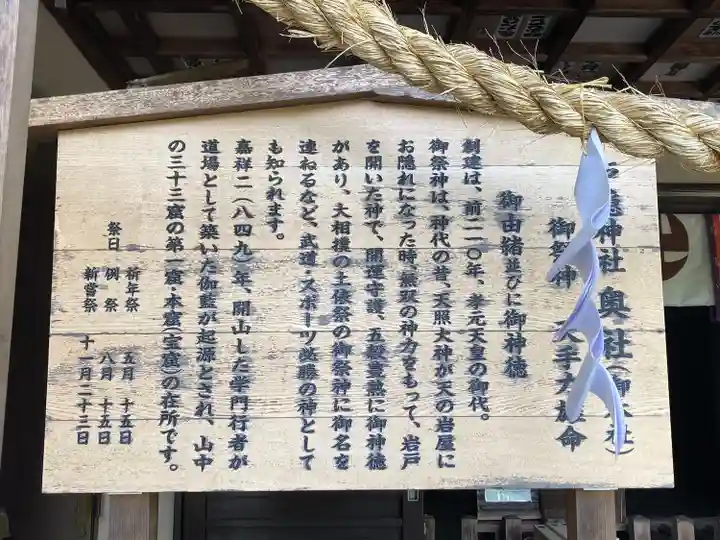 隠神社 奥社（御本社）
御祭神 天手力雄命
御由緒並びに御神徳
創建は、前二一〇年、孝元天皇の御代。
御祭神は、神代の昔、天照大神が天の岩屋に
お隠れになった時、無双の神力をもって、岩戸
を開いた神で、開運守護、五穀豊熟に御神徳
があり、大相撲の土俵祭の御祭神に御名を
連ねるなど、武道・スポーツ必勝の神として
も知られます。
嘉祥二（八四九）年、開山した学門行者が
道場として築いた伽藍が起源とされ、山中
の三十三窟の第一窟・本窟（宝窟）の在所です。
祭日 祈年祭 五月 十五日
例祭 八月 十五日
新嘗祭 十一月二十三日